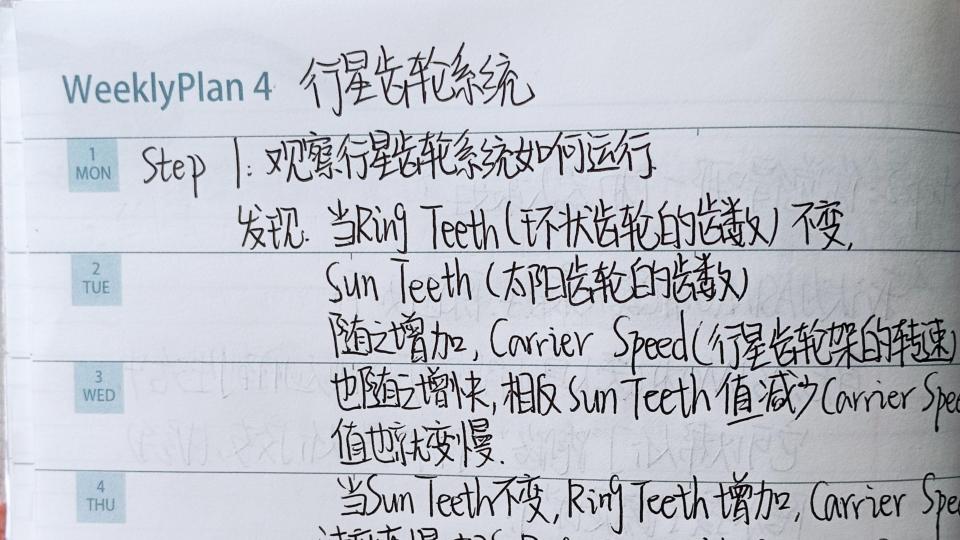 WeeklyPlan 4 行星齿轮系统
1 MON Step 1: 观察行星齿轮系统如何运行.
发现. 当Ring Teeth(环状齿轮的齿数) 不变,
2 TUE Sun Teeth (太阳齿轮的齿数)
随之增加, Carrier Speed(行星齿轮架的转速)
3 WED 也随之增快, 相反Sun Teeth 值减少Carrier Spee
值也就变慢.
4 THU 当Sun Teeth不变, Ring Teeth 增加, Carrier Spe